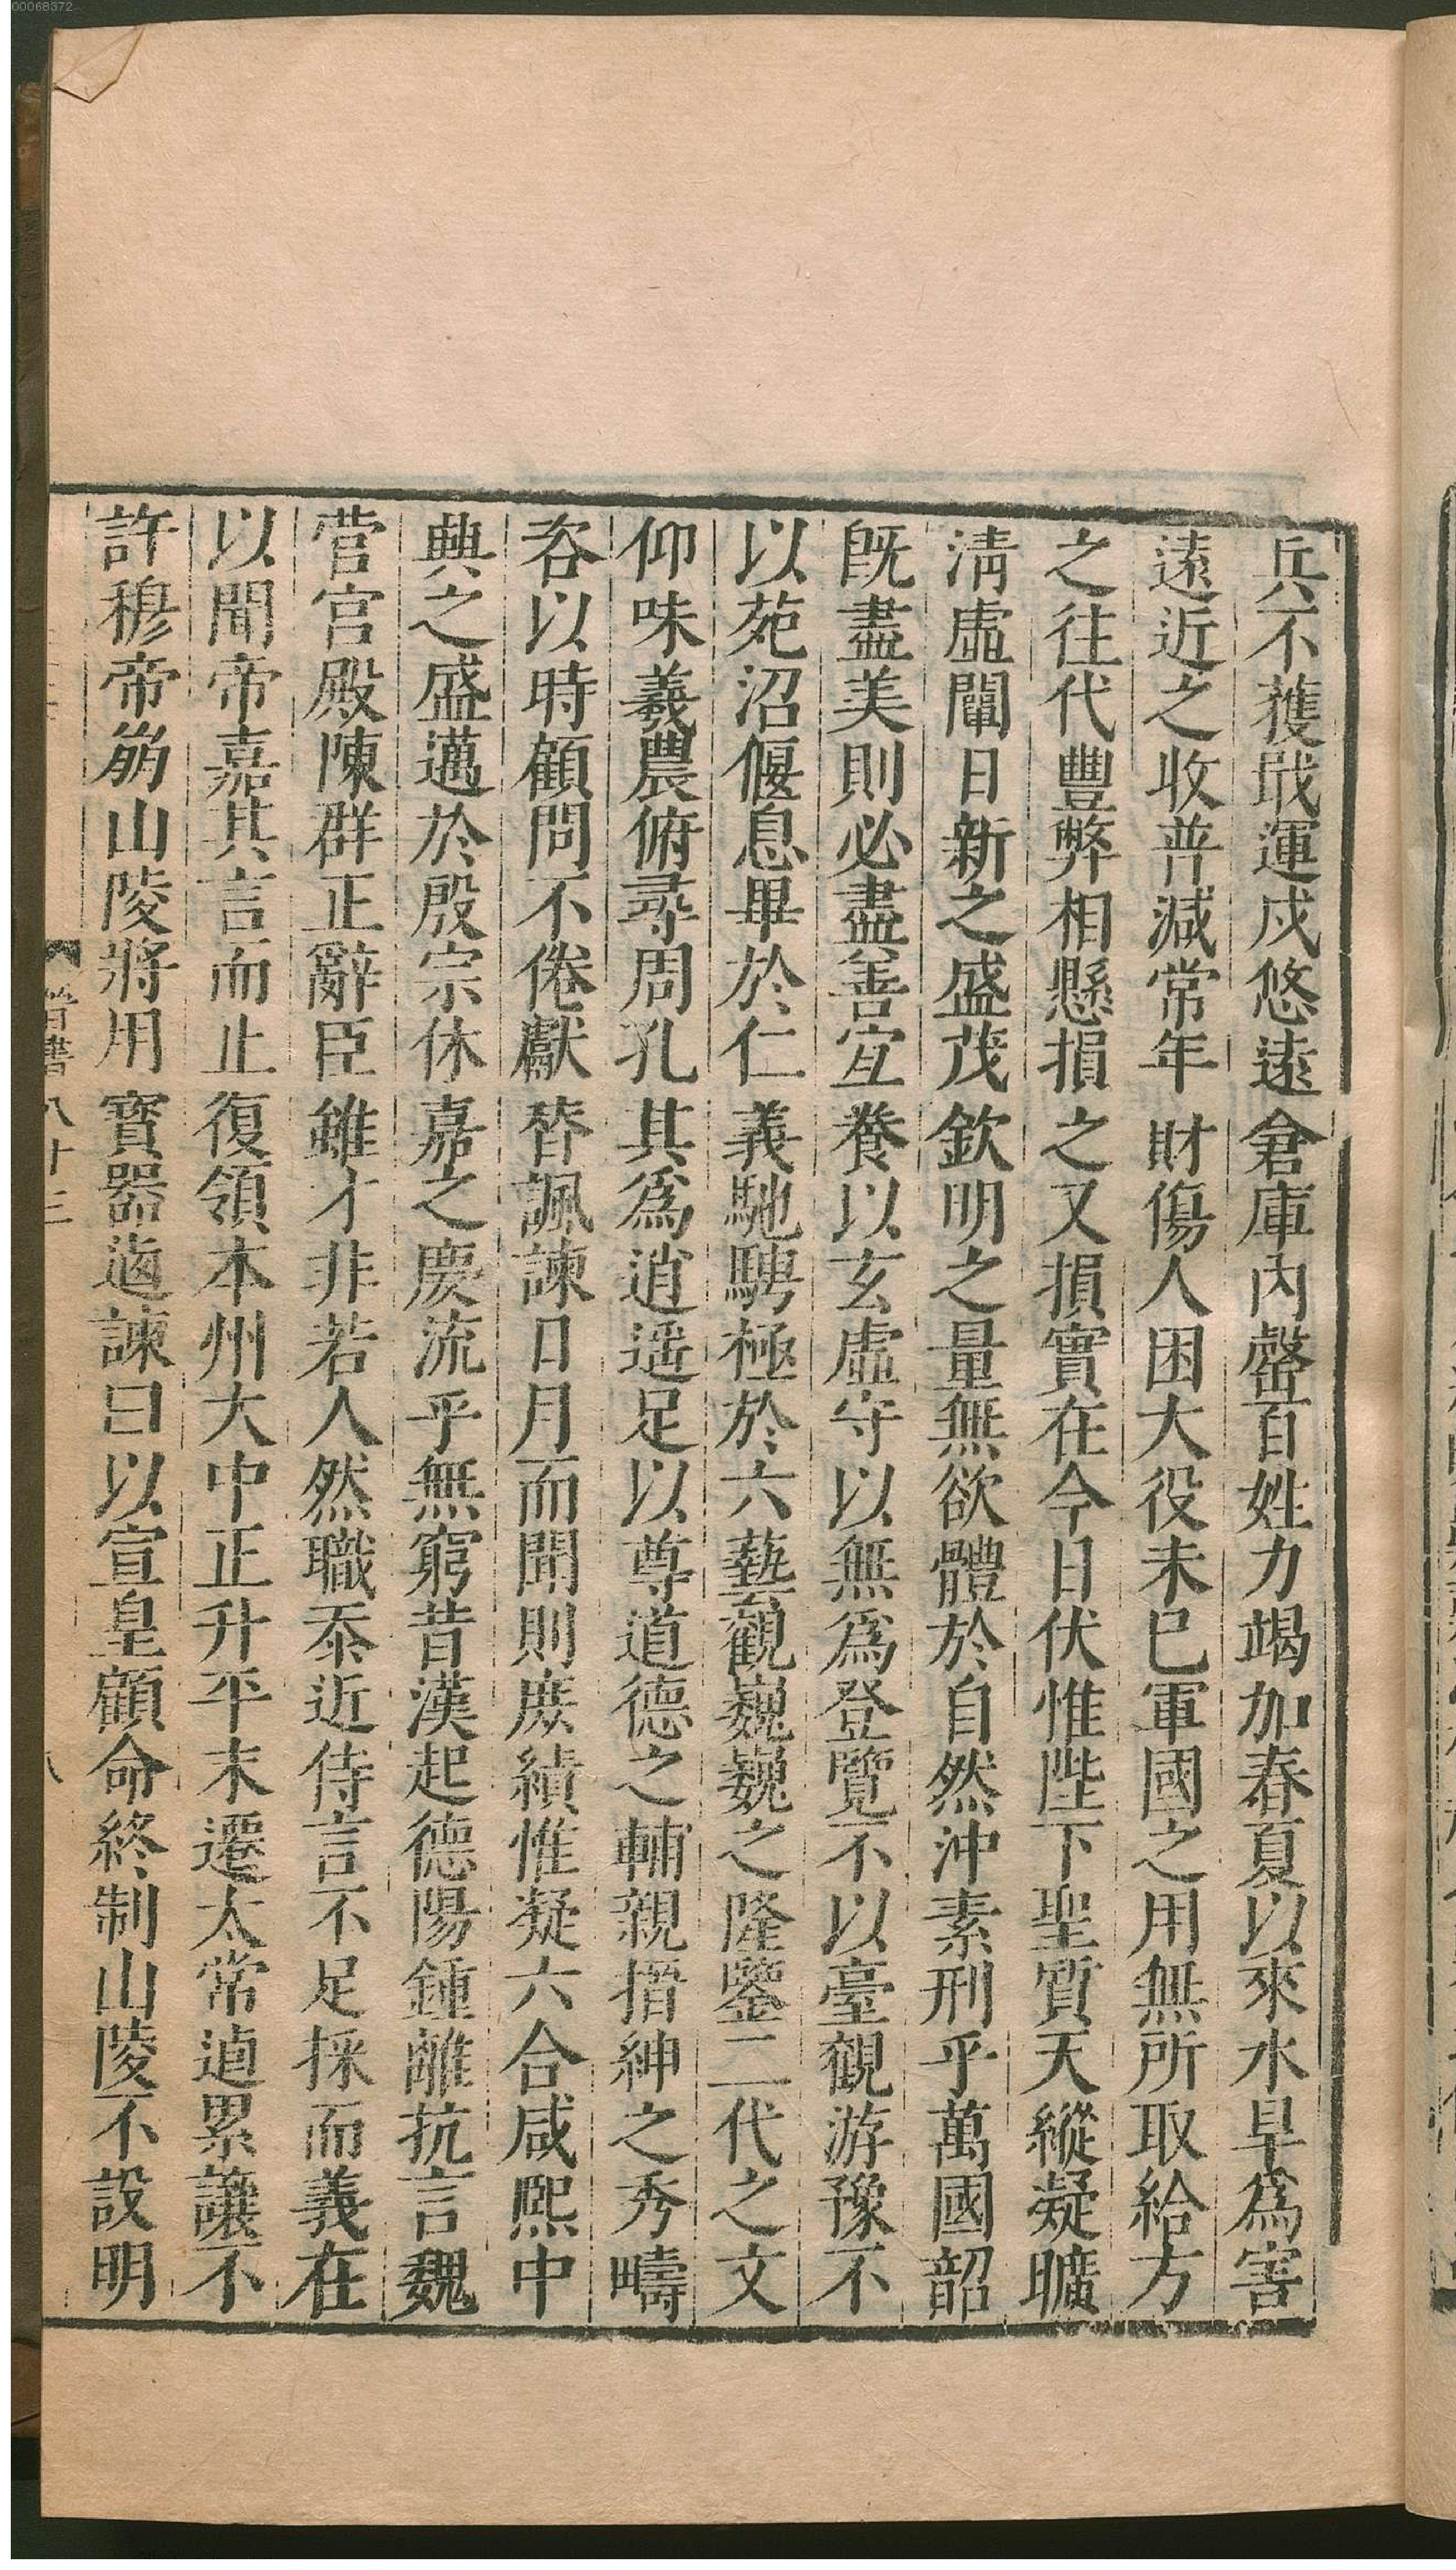 00068372
兵不獲戢運戍悠遠倉庫內罄百姓力竭加春夏以來水旱爲害
遠近之收普減常年財傷人困大役未已軍國之用無所取給方
之往代豐弊相懸損之又損實在今日伏惟陛下聖質天縱凝曠
淸虛闡日新之盛茂欽明之量無欲體於自然沖素刑乎萬國韶
旣盡美則必盡善宜養以玄虛守以無爲登覽不以臺觀游豫不
以苑沼偃息畢於仁義馳騁極於六藝觀巍巍之隆鑒二代之文
仰味羲農俯尋周孔其爲逍遥足以尊道德之輔親搢紳之秀疇
咨以時顧問不倦獻替諷諫日月而聞則庶績惟凝六合咸熙中
興之盛邁於殷宗休嘉之慶流乎無窮昔漢起德陽鍾離抗言魏
營宫殿陳群正辭臣雖才非若人然職忝近侍言不足採而義在
以聞帝嘉其言而止復領本州大中正升平末遷太常逌累讓不
許穆帝崩山陵將用寶器逌諫曰以宣皇顧命終制山陵不設明
晉書八十三
八